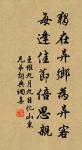 獨在异鄉為异客
每逢佳節倍思親
王維九月九日憶山東
兄弟